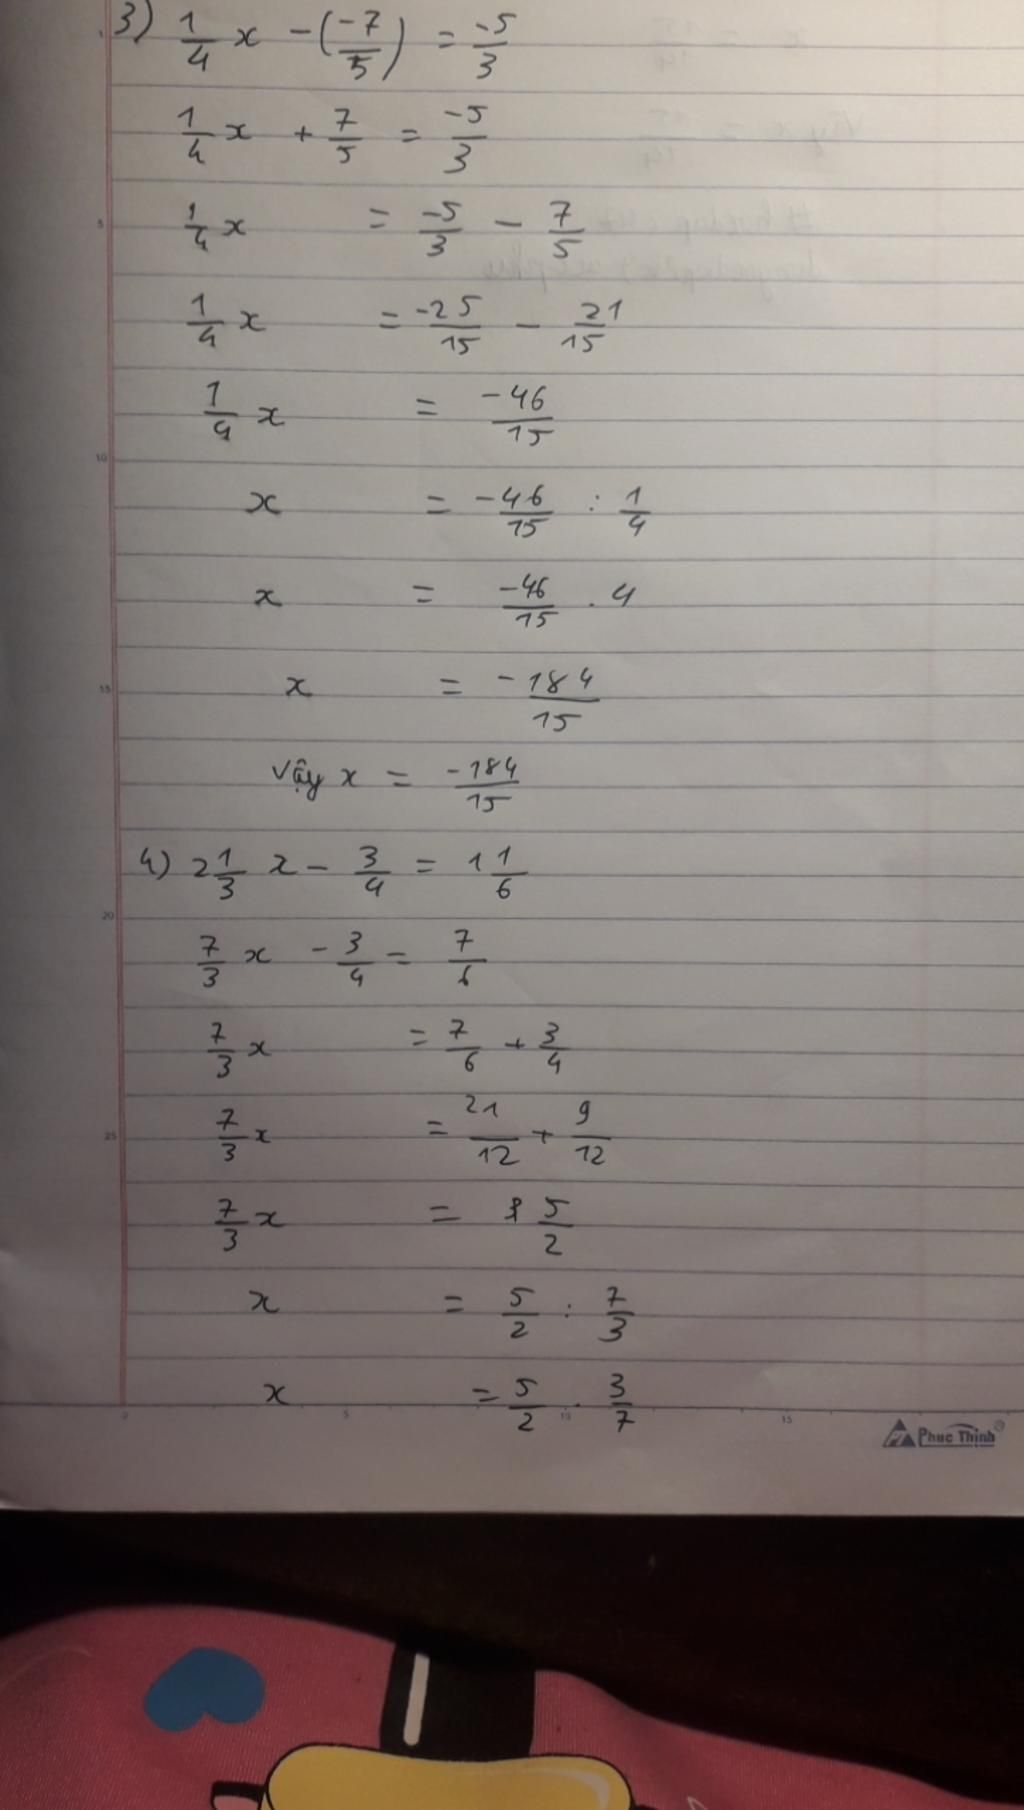 3) 1/4 x - (-7/5) = -5/3
1/4 x + 7/5 = -5/3
1/4 x = -5/3 - 7/5
1/4 x = -25/15 - 21/15
1/4 x = -46/15
x = -46/15 : 1/4
x = -46/15 . 4
x = -184/15
Vậy x = -184/15
4) 2 1/3 x - 3/4 = 1 1/6
7/3 x - 3/4 = 7/6
7/3 x = 7/6 + 3/4
7/3 x = 21/12 + 9/12
7/3 x = 5/2
x = 5/2 : 7/3
x = 5/2 . 3/7
Phuc Thinh